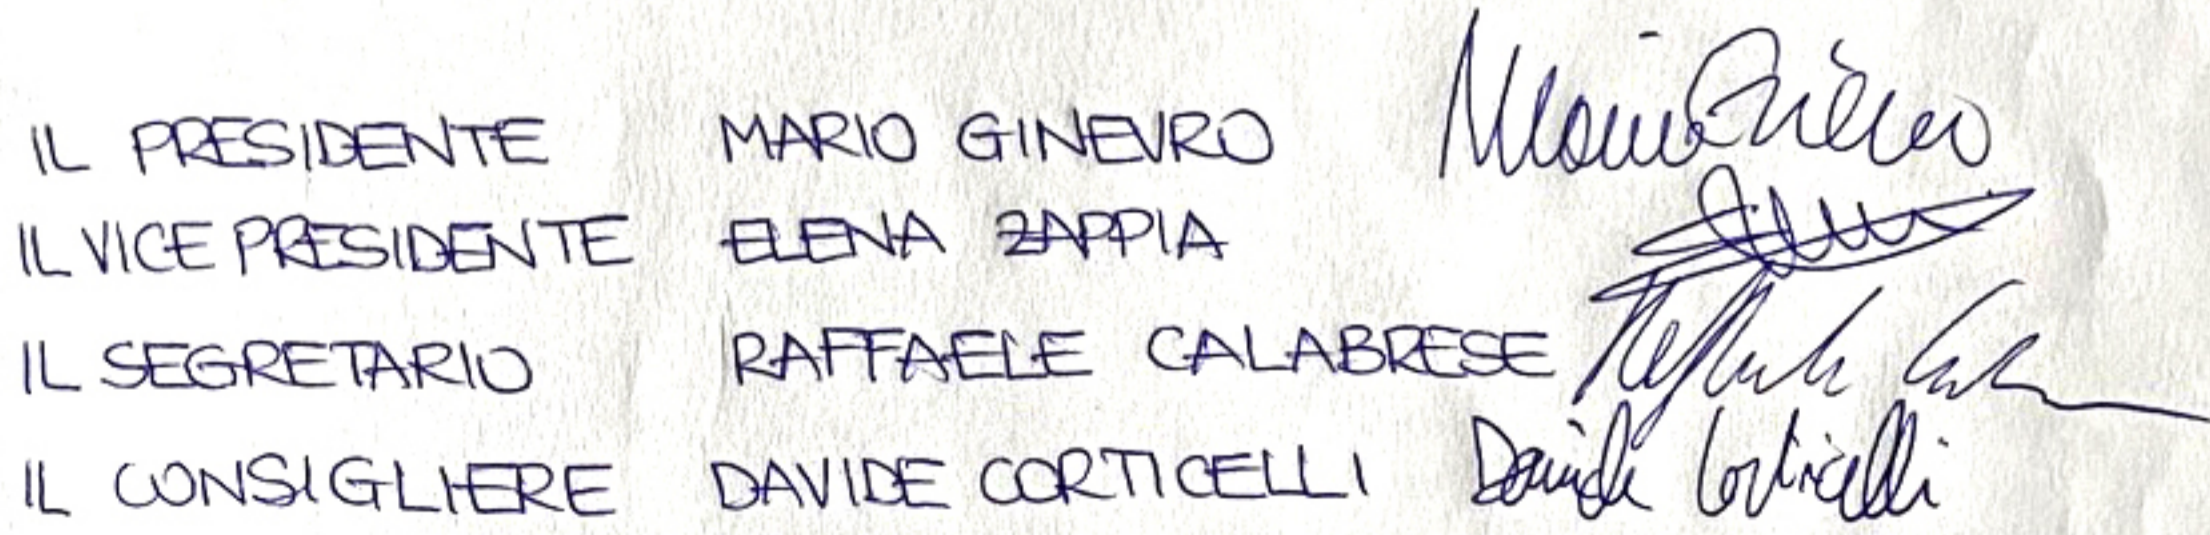 IL PRESIDENTE MARIO GINEVRO Mario Ginevro
IL VICE PRESIDENTE ELENA ZAPPIA
IL SEGRETARIO RAFFAELE CALABRESE
IL CONSIGLIERE DAVIDE CORTICELLI Davide Corticelli